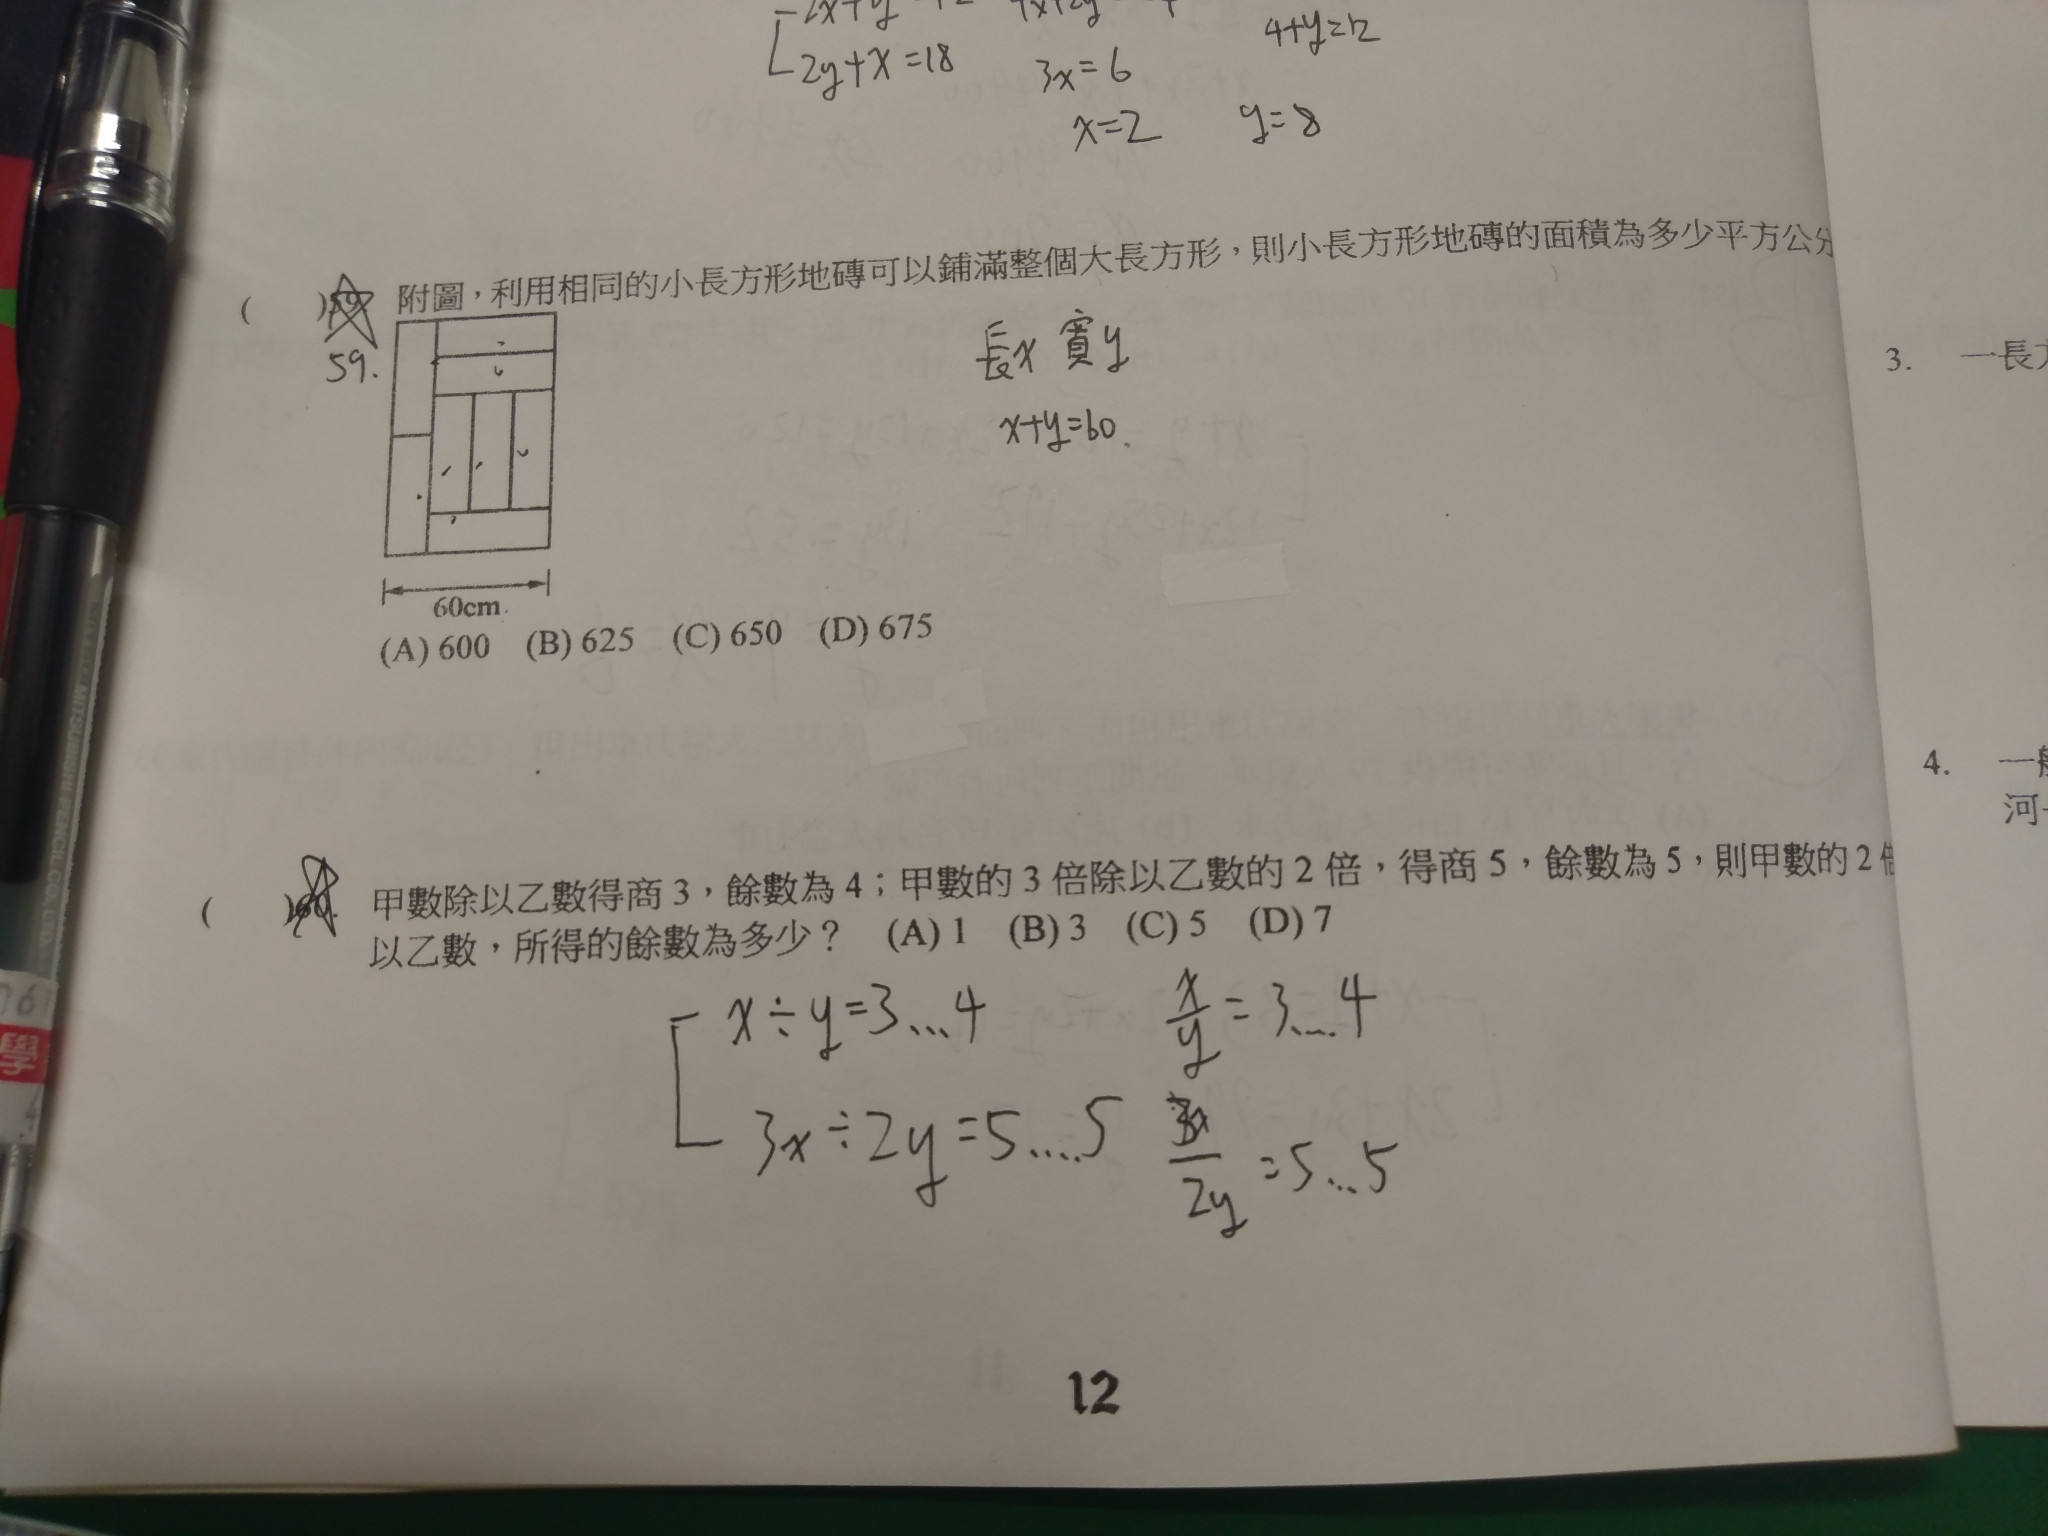 2y+x=18
3x=6
4+y=12
x=2
y=8
( )59. 附圖，利用相同的小長方形地磚可以鋪滿整個大長方形，則小長方形地磚的面積為多少平方公分
59.
長x 寬y
x+y=60.
60cm.
(A) 600 (B) 625 (C) 650 (D) 675
( )60. 甲數除以乙數得商 3，餘數為 4；甲數的 3 倍除以乙數的 2 倍，得商 5，餘數為 5，則甲數的 2 倍
以乙數，所得的餘數為多少？ (A) 1 (B) 3 (C) 5 (D) 7
x÷y=3...4
x/y=3....4
3x÷2y=5....5
3x/2y=5...5
12
3. 一長方
4. 一船
河
學